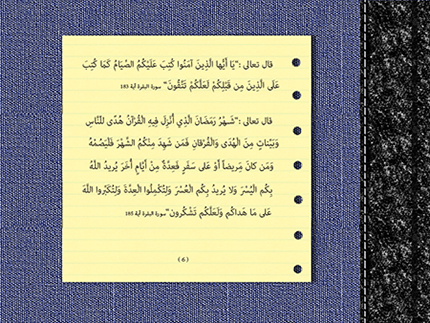 قال تعالى :"يَا أَيُّها الَّذِينَ آمَنُوا كُتِبَ عَلَيْكُمُ الصِّيَامُ كَمَا كُتِبَ
عَلَى الَّذِينَ مِن قَبْلِكُمْ لَعَلَّكُمْ تَتَّقُونَ" سورة البقرة آية 183
قال تعالى :"شَهْرُ رَمَضَانَ الَّذِي أُنْزِلَ فِيهِ الْقُرْآنُ هُدًى لِلنَّاسِ
وَبَيِّنَاتٍ مِنَ الْهُدَى وَالْفُرْقَانِ فَمَن شَهِدَ مِنْكُمُ الشَّهْرَ فَلْيَصُمْهُ
وَمَن كَانَ مَرِيضاً أَوْ عَلى سَفَرٍ فَعِدَّةٌ مِنْ أَيَّامٍ أُخَرَ يُرِيدُ اللَّهُ
بِكُم الْيُسْرَ وَلا يُرِيدُ بِكُم الْعُسْرَ وَلِتُكْمِلُوا الْعِدَّةَ وَلِتُكَبِّرُوا اللَّهَ
عَلى مَا هَدَاكُم وَلَعَلَّكُم تَشْكُرون" سورة البقرة آية 185
(6)